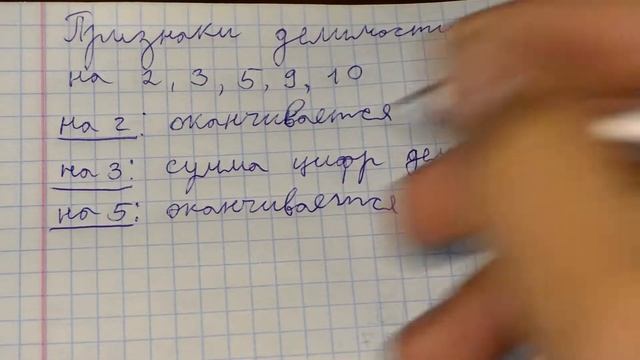 Признаки делимости
на 2, 3, 5, 9, 10
на 2: оканчивается
на 3: сумма цифр
на 5: оканчивается